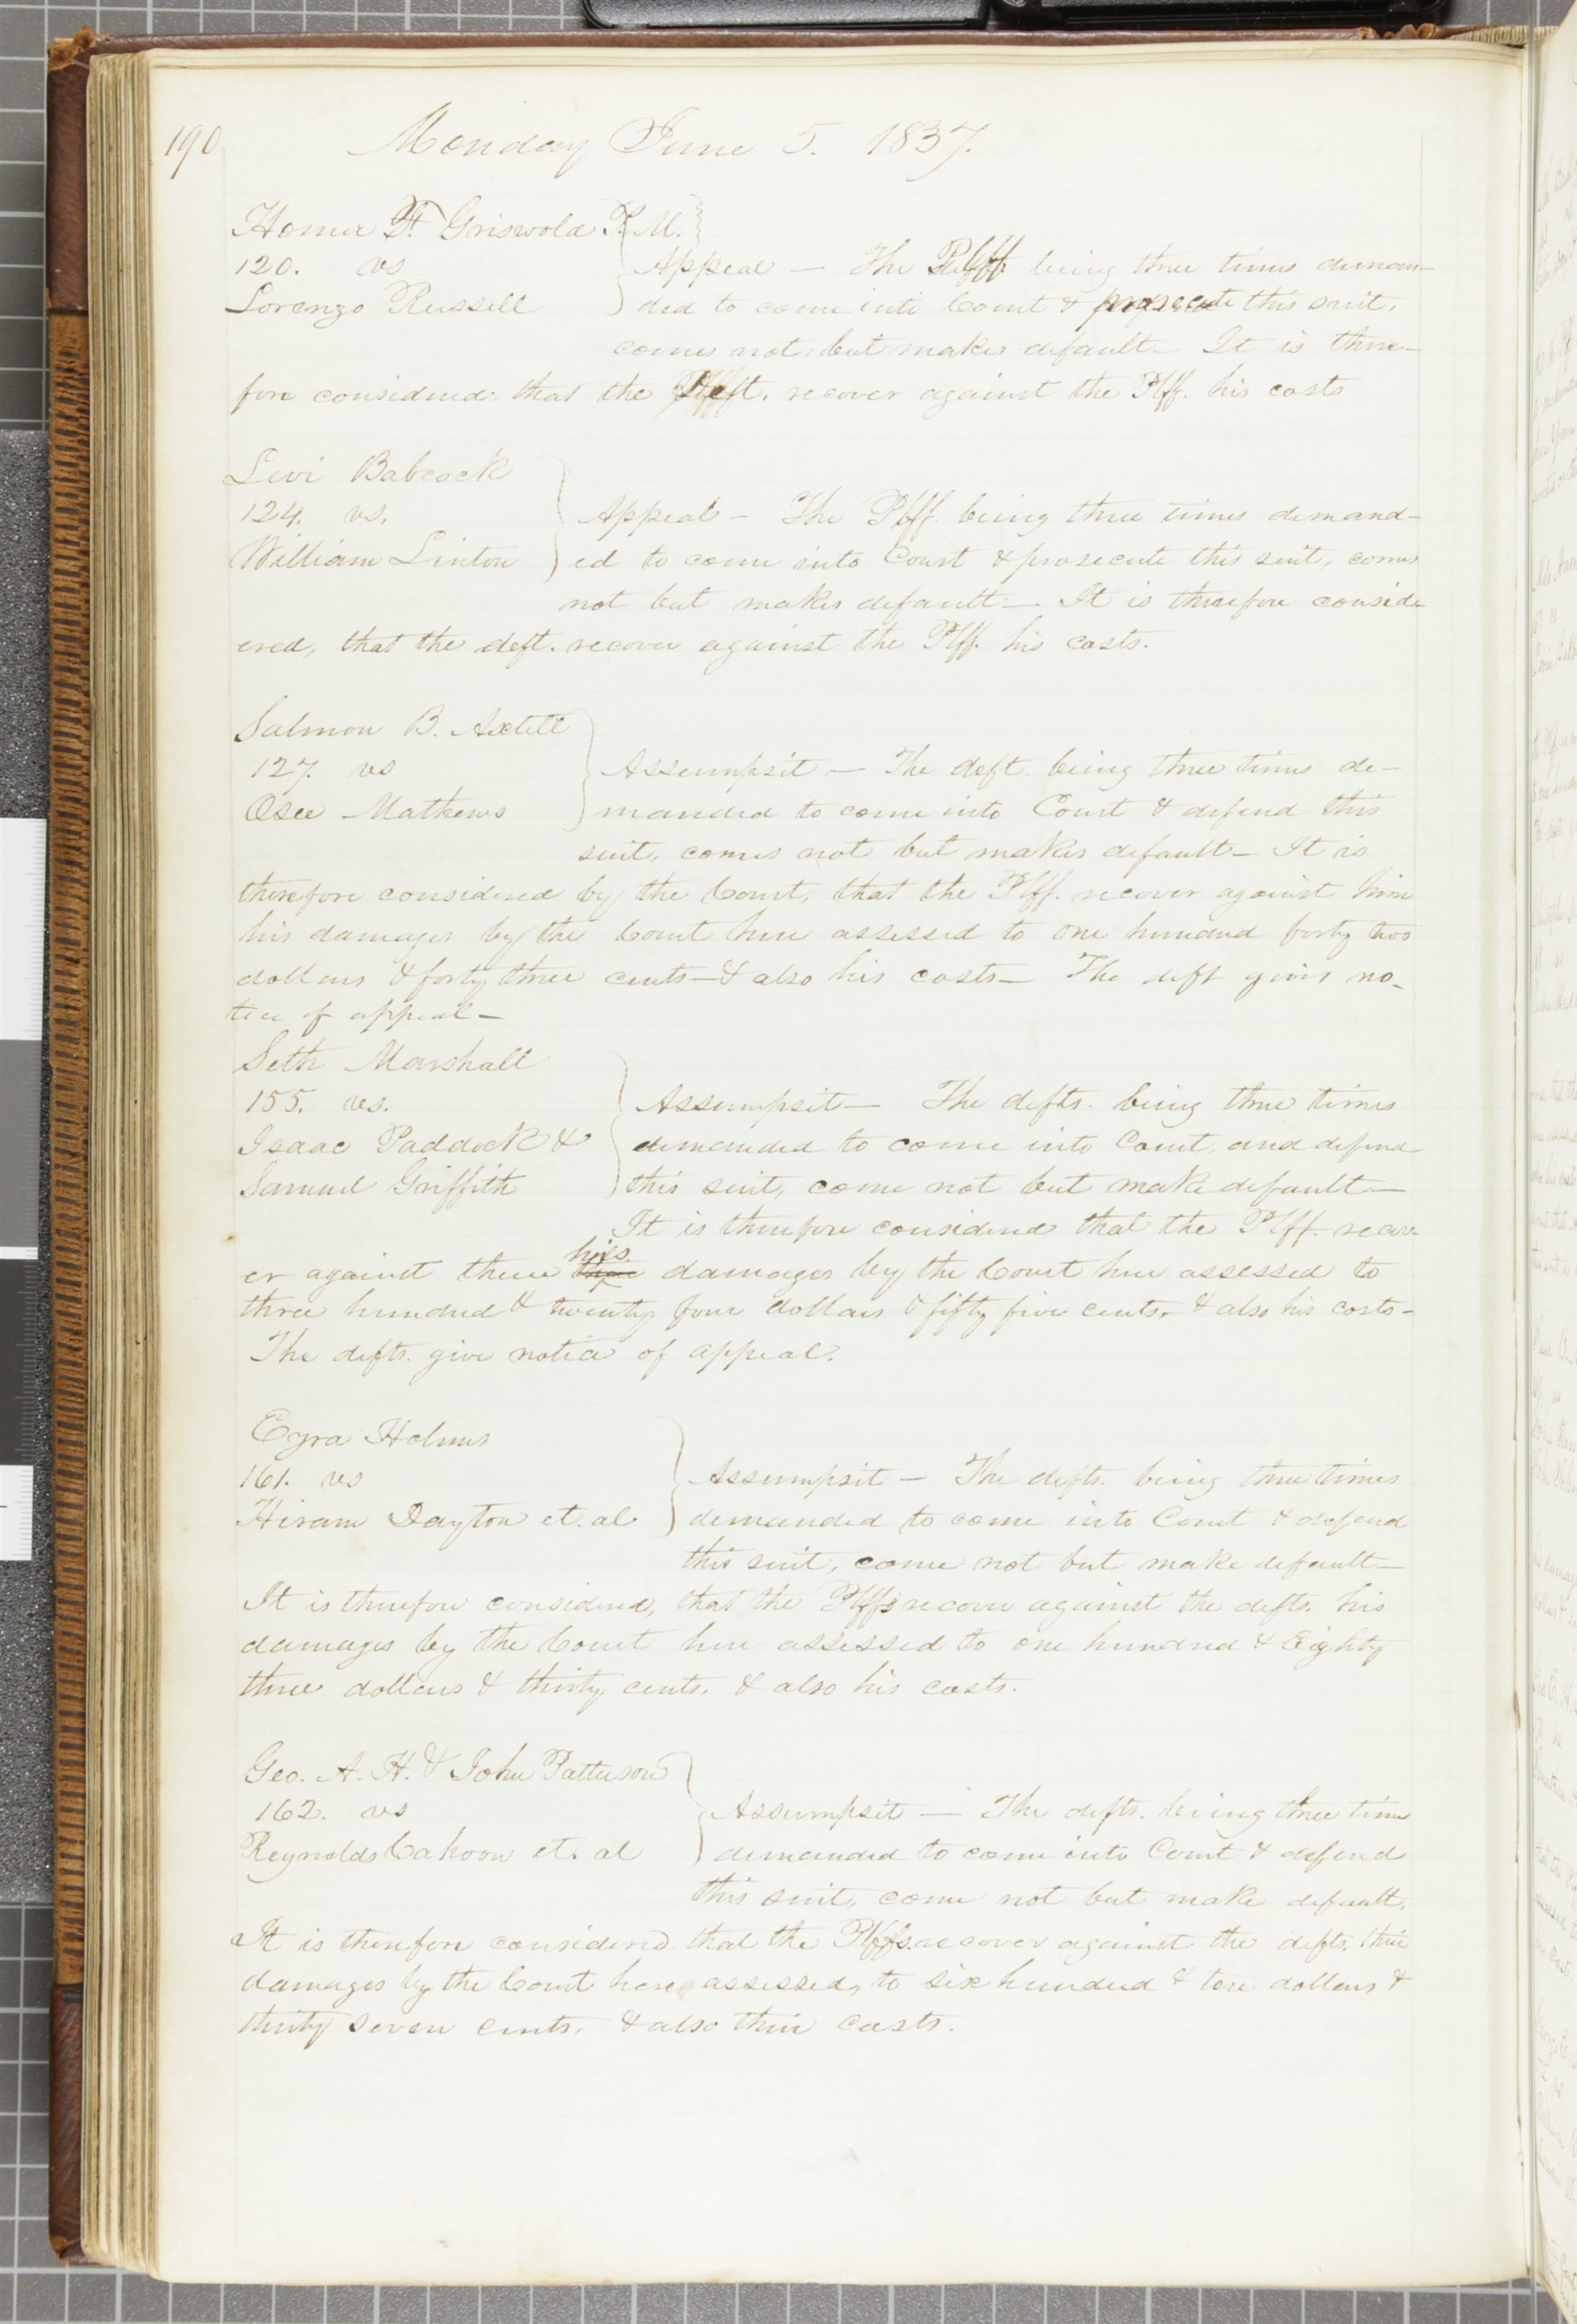 190
Monday June 5. 1837.
Homer F. Griswold P. M.
120. vs
Lorenzo Russell
Appeal — The Plff being three times deman-
ded to come into Court & prosecute this suit,
comes not, but makes default— It is there-
fore considered, that the Deft. recover against the Plff. his costs
Levi Babcock
124. vs.
William Linton
Appeal — The Plff. being three times demand-
ed to come into Court & prosecute this suit, comes
not but makes default— It is therefore consid-
ered, that the deft. recover against the Plff. his costs.
Salmon B. Axtell
127. vs
Osee Mathews
Assumpsit — The deft. being three times de-
manded to come into Court & defend this
suit, comes not but makes default— It is
therefore considered by the Court, that the Plff. recover against him
his damages by the Court here assessed to one hundred forty two
dollars & forty three cents—& also his costs— The deft gives no-
tice of appeal—
Seth Marshall
155. vs.
Isaac Paddock &
Samuel Griffith
Assumpsit — The defts. being three times
demanded to come into Court, and defend
this suit, come not but make default—
It is therefore considered that the Plff. recov-
er against them his damages by the Court here assessed to
three hundred & twenty four dollars & fifty five cents, & also his costs—
The defts. give notice of appeal.
Ezra Holmes
161. vs
Hiram Dayton et. al
Assumpsit — The defts. being three times
demanded to come into Court & defend
this suit, come not but make default—
It is therefore considered, that the Plffs recover against the defts. his
damages by the Court here assessed to one hundred & Eighty
three dollars & thirty cents. & also his costs.
Geo. A. H. & John Patterson
162. vs
Reynolds Cahoon et. al
Assumpsit — The defts. being three times
demanded to come into Court & defend
this suit, come not but make default.
It is therefore considered that the Plffs. recover against the defts. their
damages by the Court here assessed, to six hundred & ten dollars &
thirty seven cents. & also their costs.